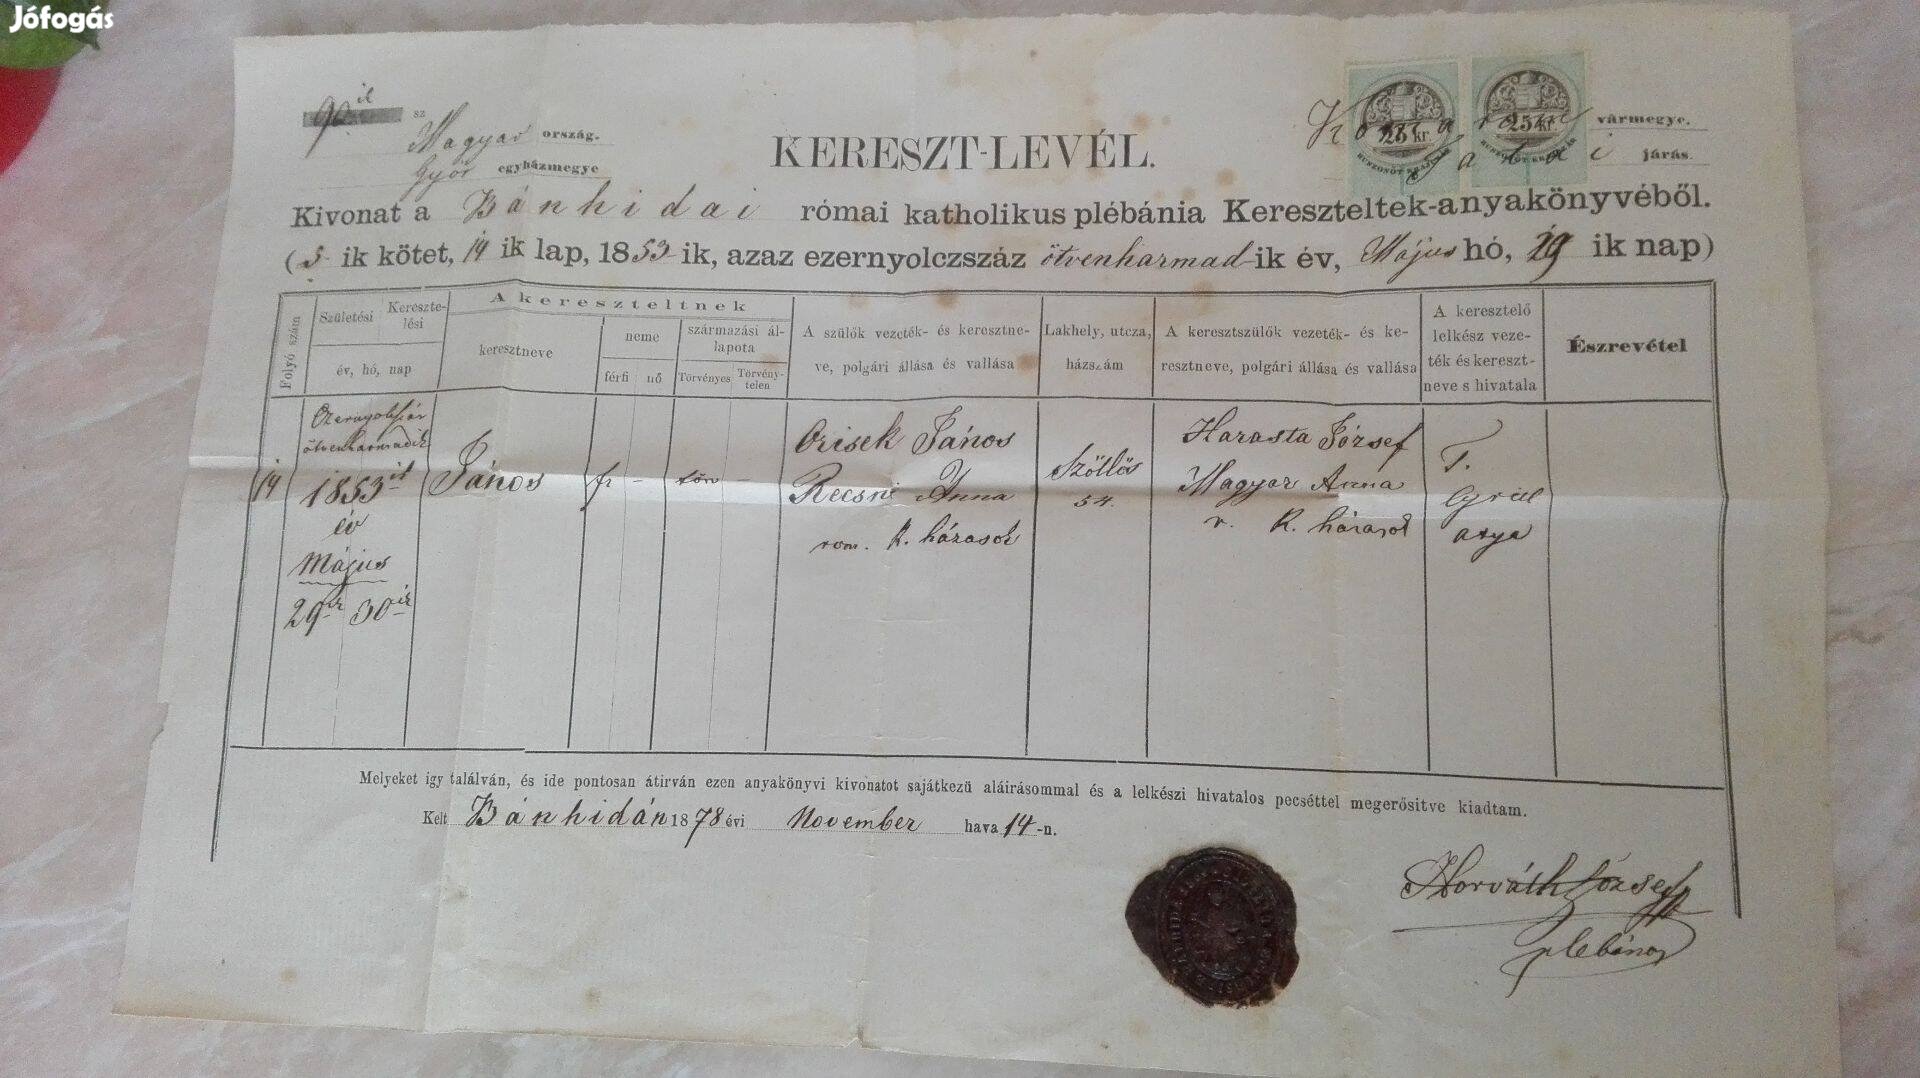 Jófogás
sz
Magyar ország.
Győr egyházmegye
KERESZT-LEVÉL.
Komárom vármegye.
Tatai járás.
25 kr.
25 kr.
Kivonat a Bánhidai római katholikus plébánia Kereszteltek-anyakönyvéből.
(5 ik kötet, 14 ik lap, 1853 ik, azaz ezernyolczszáz ötvenharmad-ik év, Május hó, 29 ik nap)
Folyó szám
Születési
Keresztelési
év, hó, nap
A kereszteltnek
keresztneve
neme
férfi
nő
származási állapota
Törvényes
Törvénytelen
A szülők vezeték- és keresztneve, polgári állása és vallása
Lakhely, utcza, házszám
A keresztszülők vezeték- és keresztneve, polgári állása és vallása
A keresztelő lelkész vezeték és keresztneve s hivatala
Észrevétel
14
ötvenharmadik
1853 ik
év
Május
29ik 30ik
János
fi
-
törv
-
János
Anna
rom. K. házasok
Szöllős
54.
Harasta József
Magyar Anna
r. K. házasok
T.
Cyrill
atya
Melyeket igy találván, és ide pontosan átirván ezen anyakönyvi kivonatot sajátkezü aláirásommal és a lelkészi hivatalos pecséttel megerősitve kiadtam.
Kelt Bánhidán 1878 évi November hava 14-n.
Horváth József
plébános